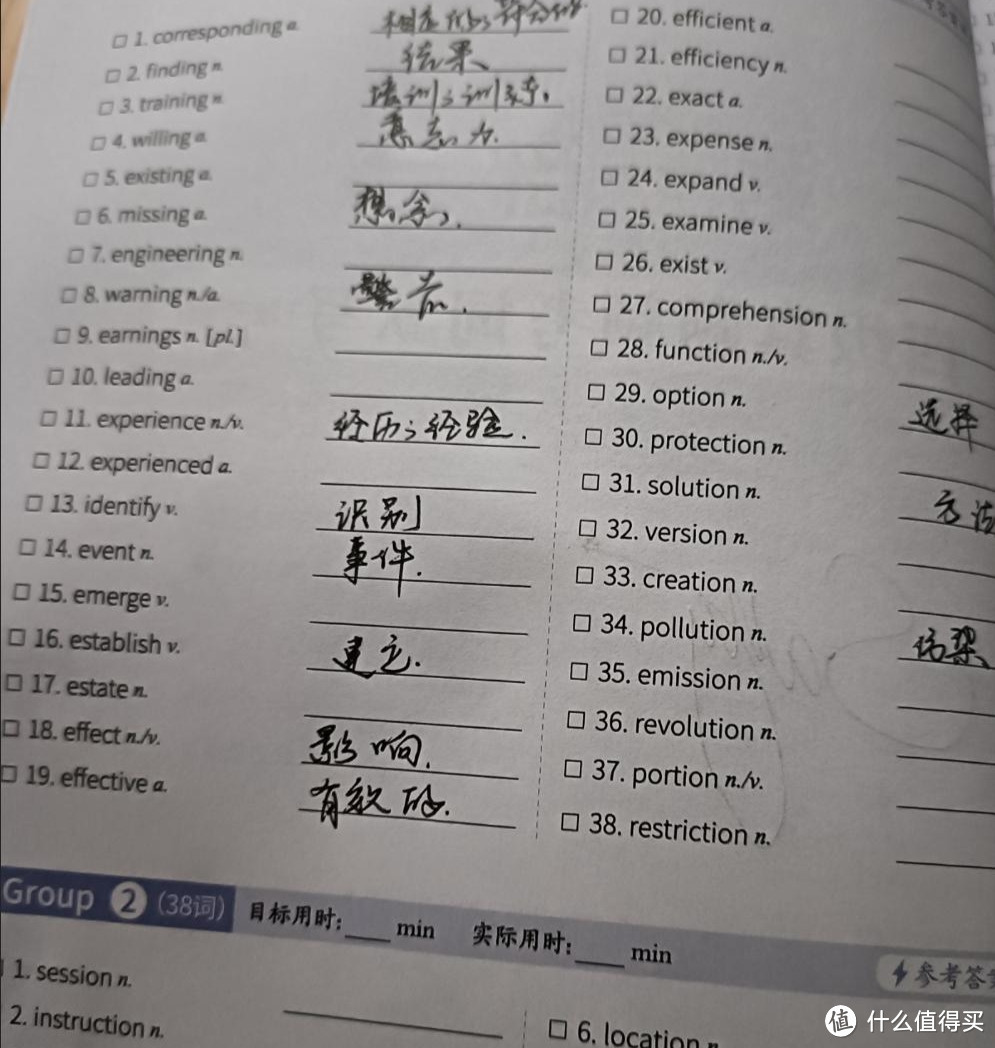 □ 1. corresponding a. 相应的；符合的
□ 2. finding n. 结果
□ 3. training n. 培训；训练
□ 4. willing a. 意志力.
□ 5. existing a.
□ 6. missing a. 想念.
□ 7. engineering n.
□ 8. warning n./a. 警告.
□ 9. earnings n. [pl.]
□ 10. leading a.
□ 11. experience n./v. 经历；经验.
□ 12. experienced a.
□ 13. identify v. 识别
□ 14. event n. 事件.
□ 15. emerge v.
□ 16. establish v. 建立.
□ 17. estate n.
□ 18. effect n./v. 影响.
□ 19. effective a. 有效的.
□ 20. efficient a.
□ 21. efficiency n.
□ 22. exact a.
□ 23. expense n.
□ 24. expand v.
□ 25. examine v.
□ 26. exist v.
□ 27. comprehension n.
□ 28. function n./v.
□ 29. option n. 选择
□ 30. protection n.
□ 31. solution n. 方法
□ 32. version n.
□ 33. creation n.
□ 34. pollution n. 污染
□ 35. emission n.
□ 36. revolution n.
□ 37. portion n./v.
□ 38. restriction n.
Group 2 (38词) 目标用时: ____ min 实际用时: ____ min
参考答
1. session n.
2. instruction n.
□ 6. location n
值 什么值得买